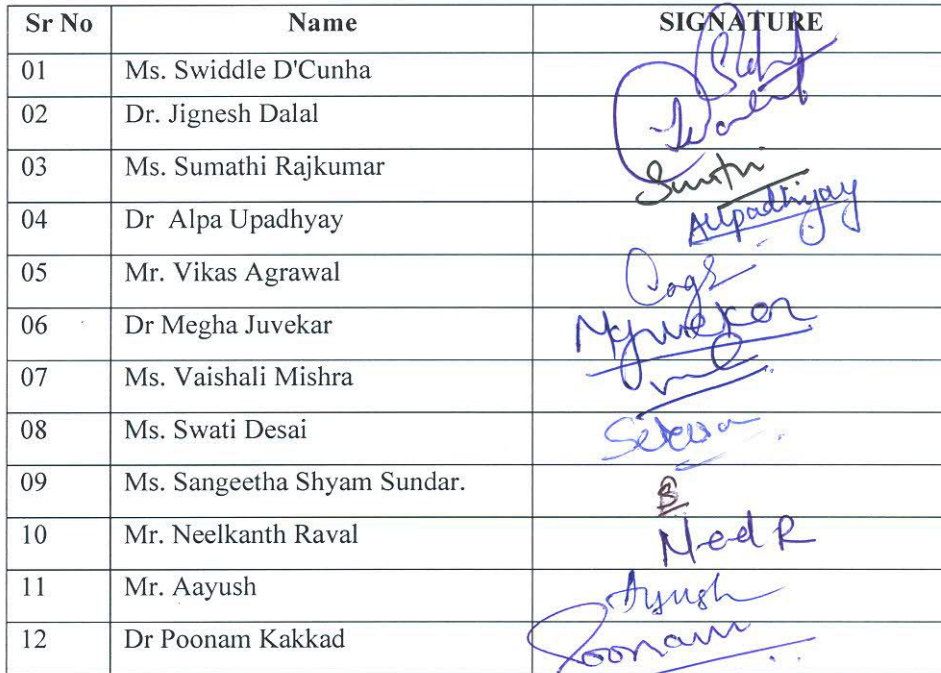 Sr No Name SIGNATURE
01 Ms. Swiddle D'Cunha
02 Dr. Jignesh Dalal
03 Ms. Sumathi Rajkumar
04 Dr Alpa Upadhyay AUpadhyay
05 Mr. Vikas Agrawal
06 Dr Megha Juvekar Mjuvekar
07 Ms. Vaishali Mishra
08 Ms. Swati Desai
09 Ms. Sangeetha Shyam Sundar.
10 Mr. Neelkanth Raval Neel R
11 Mr. Aayush Ayush
12 Dr Poonam Kakkad Poonam